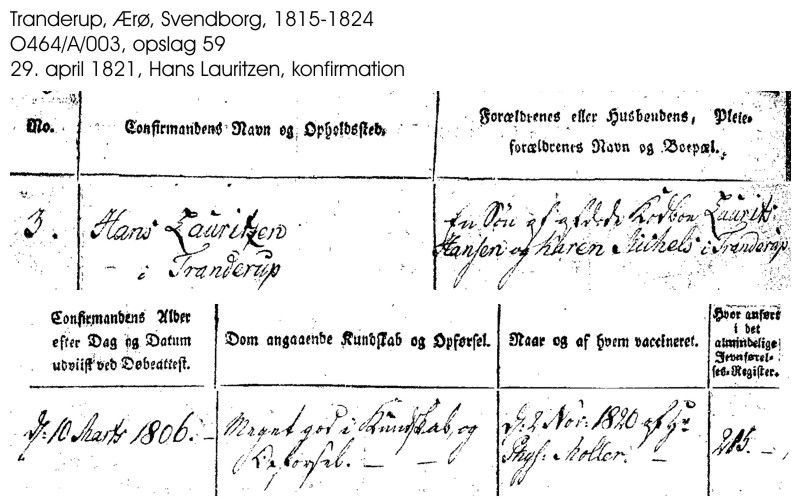 Tranderup, Ærø, Svendborg, 1815-1824
O464/A/003, opslag 59
29. april 1821, Hans Lauritzen, konfirmation
No.
Confirmandens Navn og Opholdssted.
Forældrenes eller Husbondens, Pleie-
forældrenes Navn og Boepæl.
3.
Hans Lauritzen
- i Tranderup
En Søn af afdøde Kodboe Laurits
Hansen og Karen Michels i Tranderup
Confirmandens Alder
efter Dag og Datum
udviist ved Døbeattest.
Dom angaaende Kundskab og Opførsel.
Naar og af hvem vaccineret.
Hvor anført
i det
almindelige
Jevnførel-
ses-Register.
d: 10 Marts 1806. -
Meget god i Kundskab og
Opførsel. - -
d: 2 Nov: 1820 af Hr
Phys: Møller. -
215. -